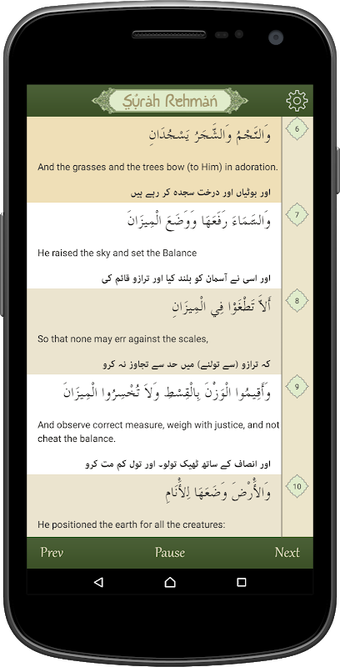 Surah Rehman
6
وَالنَّجْمُ وَالشَّجَرُ يَسْجُدَانِ
And the grasses and the trees bow (to Him) in adoration.
اور بوٹیاں اور درخت سجدہ کر رہے ہیں
7
وَالسَّمَاءَ رَفَعَهَا وَوَضَعَ الْمِيزَانَ
He raised the sky and set the Balance
اور اسی نے آسمان کو بلند کیا اور ترازو قائم کی
8
أَلَّا تَطْغَوْا فِي الْمِيزَانِ
So that none may err against the scales,
کہ ترازو (سے تولنے) میں حد سے تجاوز نہ کرو
9
وَأَقِيمُوا الْوَزْنَ بِالْقِسْطِ وَلَا تُخْسِرُوا الْمِيزَانَ
And observe correct measure, weigh with justice, and not
cheat the balance.
اور انصاف کے ساتھ ٹھیک تولو۔ اور تول کم مت کرو
10
وَالْأَرْضَ وَضَعَهَا لِلْأَنَامِ
He positioned the earth for all the creatures:
Prev Pause Next